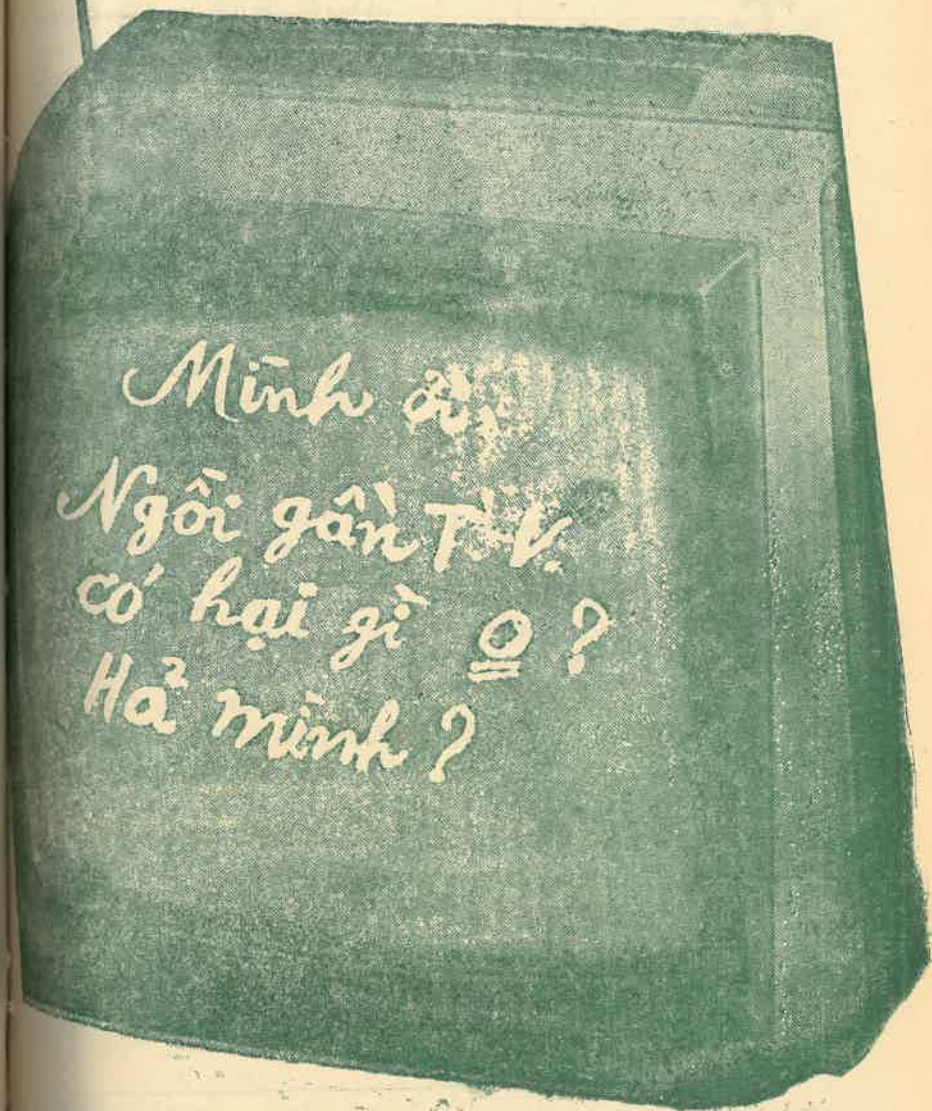 Mình ơi,
Ngồi gần T.V.
có hại gì O ?
Hả mình ?